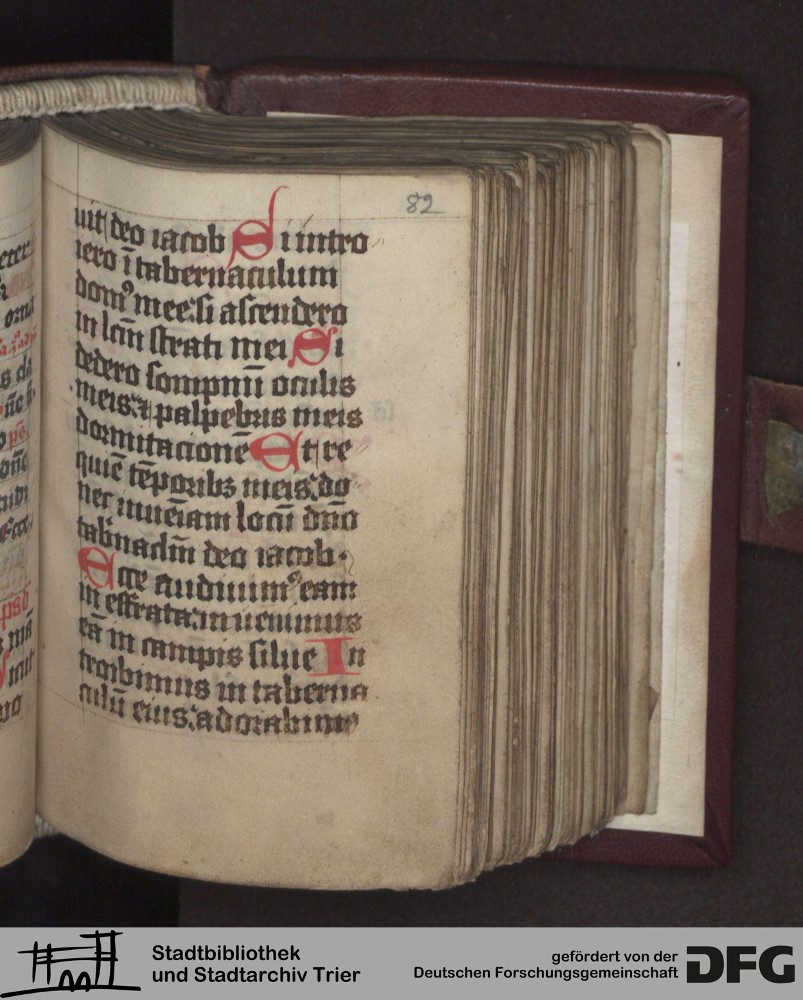 82
uit deo iacob Si intro
iero ī tabernaculum
domꝰ mee: si ascendero
in lcm̄ strati mei Si
dedero sompnū oculis
meis: ⁊ palpebris meis
dormitacionē Et re
quiē tēporibꝫ meis: do
nec inueīam locū dn̄o
tabnaclm̄ deo iacob.
Ecce audiuimꝰ eam
in effrata: inuenimus
eā in campis silue In
troibimus in taberna
culū eius: adorabimꝰ
Stadtbibliothek
und Stadtarchiv Trier
gefördert von der
Deutschen Forschungsgemeinschaft
DFG